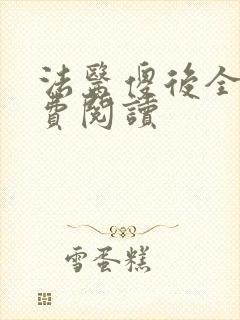 法醫傻後全
費閱讀
雪蛋糕